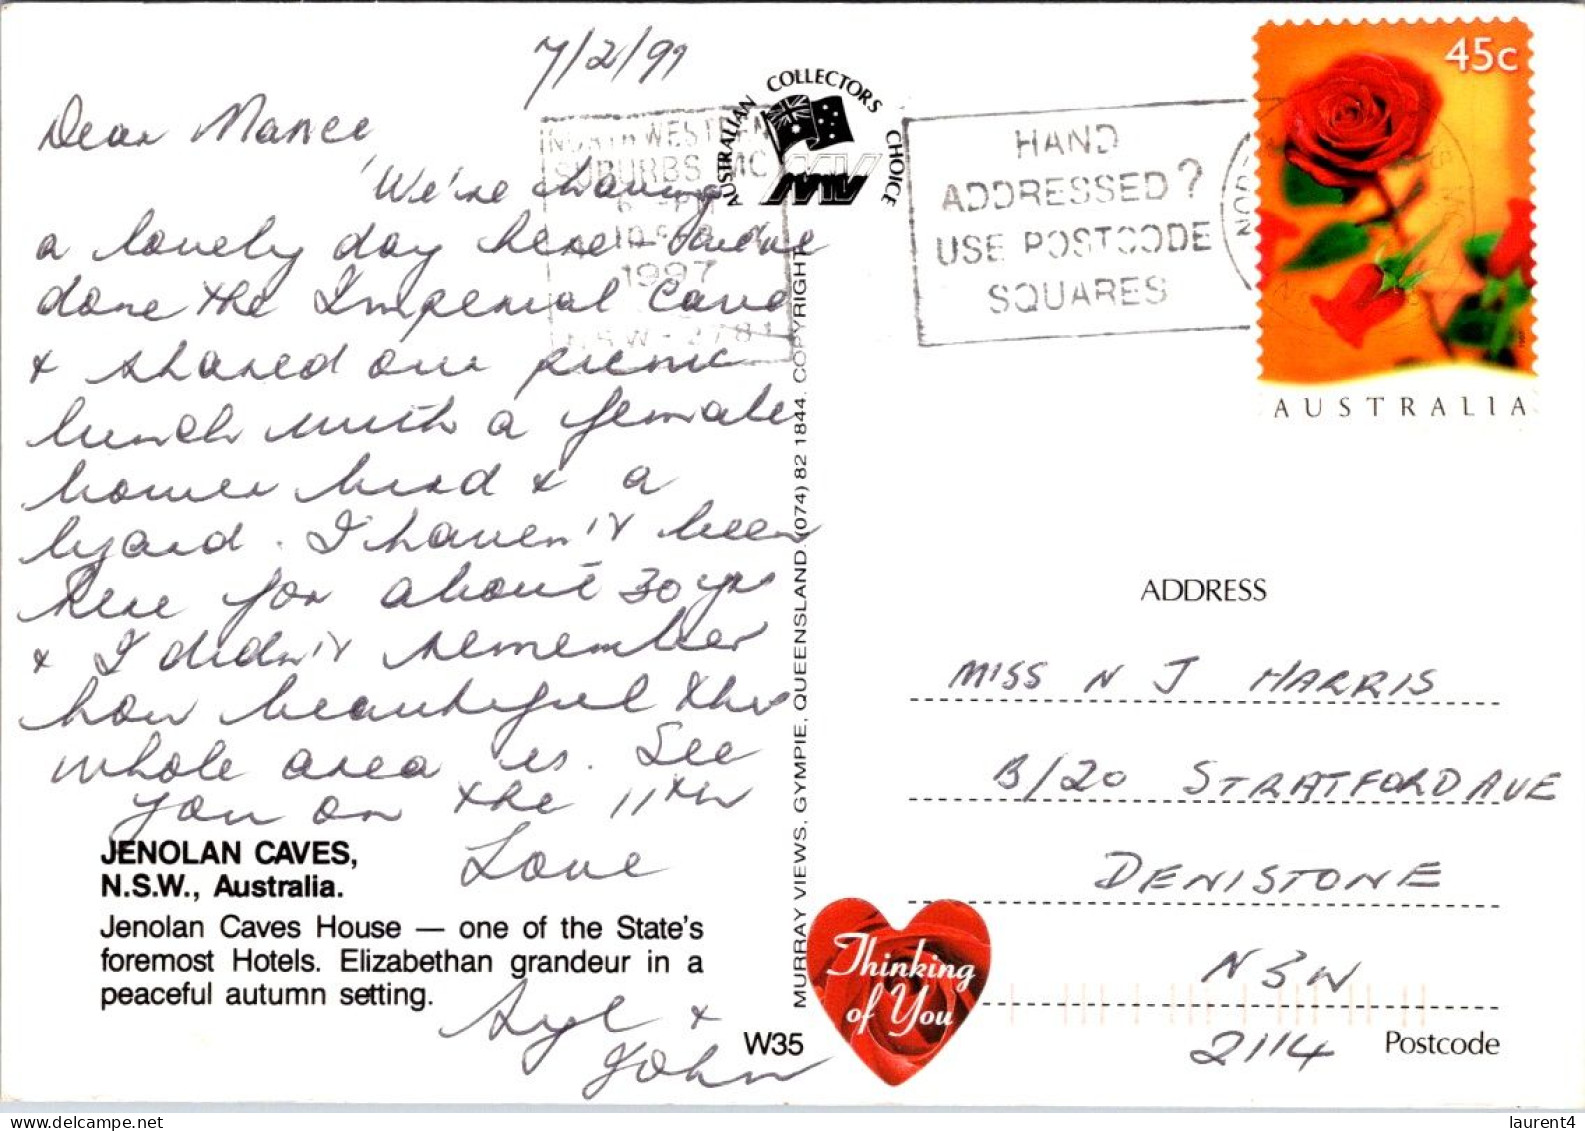 7/2/97
Dear Nance
We're having
a lovely day here. Have
done the Imperial Cave
& shared our picnic
lunch with a female
bower bird & a
lizard. I haven't been
here for about 30 yrs
& I didn't remember
how beautiful this
whole area is. See
you on the 11th
Love
&
John
JENOLAN CAVES,
N.S.W., Australia.
Jenolan Caves House — one of the State's
foremost Hotels. Elizabethan grandeur in a
peaceful autumn setting.
W35
AUSTRALIAN COLLECTORS CHOICE
MV
NORTH WESTERN
SUBURBS MC
1997
MURRAY VIEWS, GYMPIE, QUEENSLAND. (074) 82 1844. COPYRIGHT
HAND
ADDRESSED?
USE POSTCODE
SQUARES
45c
AUSTRALIA
ADDRESS
MISS N J HARRIS
B/20 STRATFORD AVE
DENISTONE
NSW
2114
Postcode
Thinking
of You
laurent4